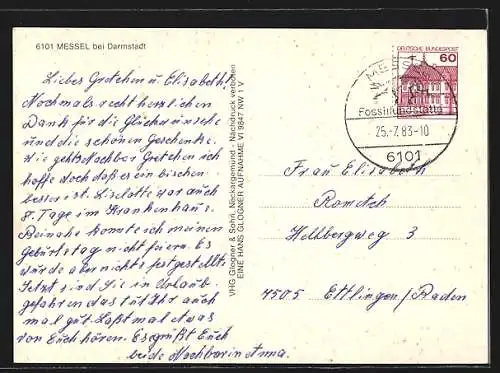 6101 MESSEL bei Darmstadt
Liebes Gretchen u. Elisabeth,
Nochmals recht herzlichen
Dank für die Glückwünsche
und die schönen Geschenke.
Wie geht Nachbar Gretchen ich
hoffe doch daß er ein bischen
besser ist. Liselotte war auch
8. Tage im Krankenhaus.
Beinahe konnte ich meinen
Geburtstag nicht feiern. Es
wurde aber nichts festgestellt.
Jetzt sind Sie in Urlaub
gefahren das tut Ihr auch
mal gut. Laßt mal etwas
von Euch hören. Es grüßt Euch
beide Nachbarin Anna.
VHG Glogner & Sohn, Neckargemünd - Nachdruck verboten
EINE HANS GLOGNER AUFNAHME VI 9847 NW 1 V
DEUTSCHE BUNDESPOST
60
MESSEL
Fossilfundstätte
25.-7.83-10
6101
Frau Elisabeth
Hellbergweg 3
7505 Ettlingen/Baden